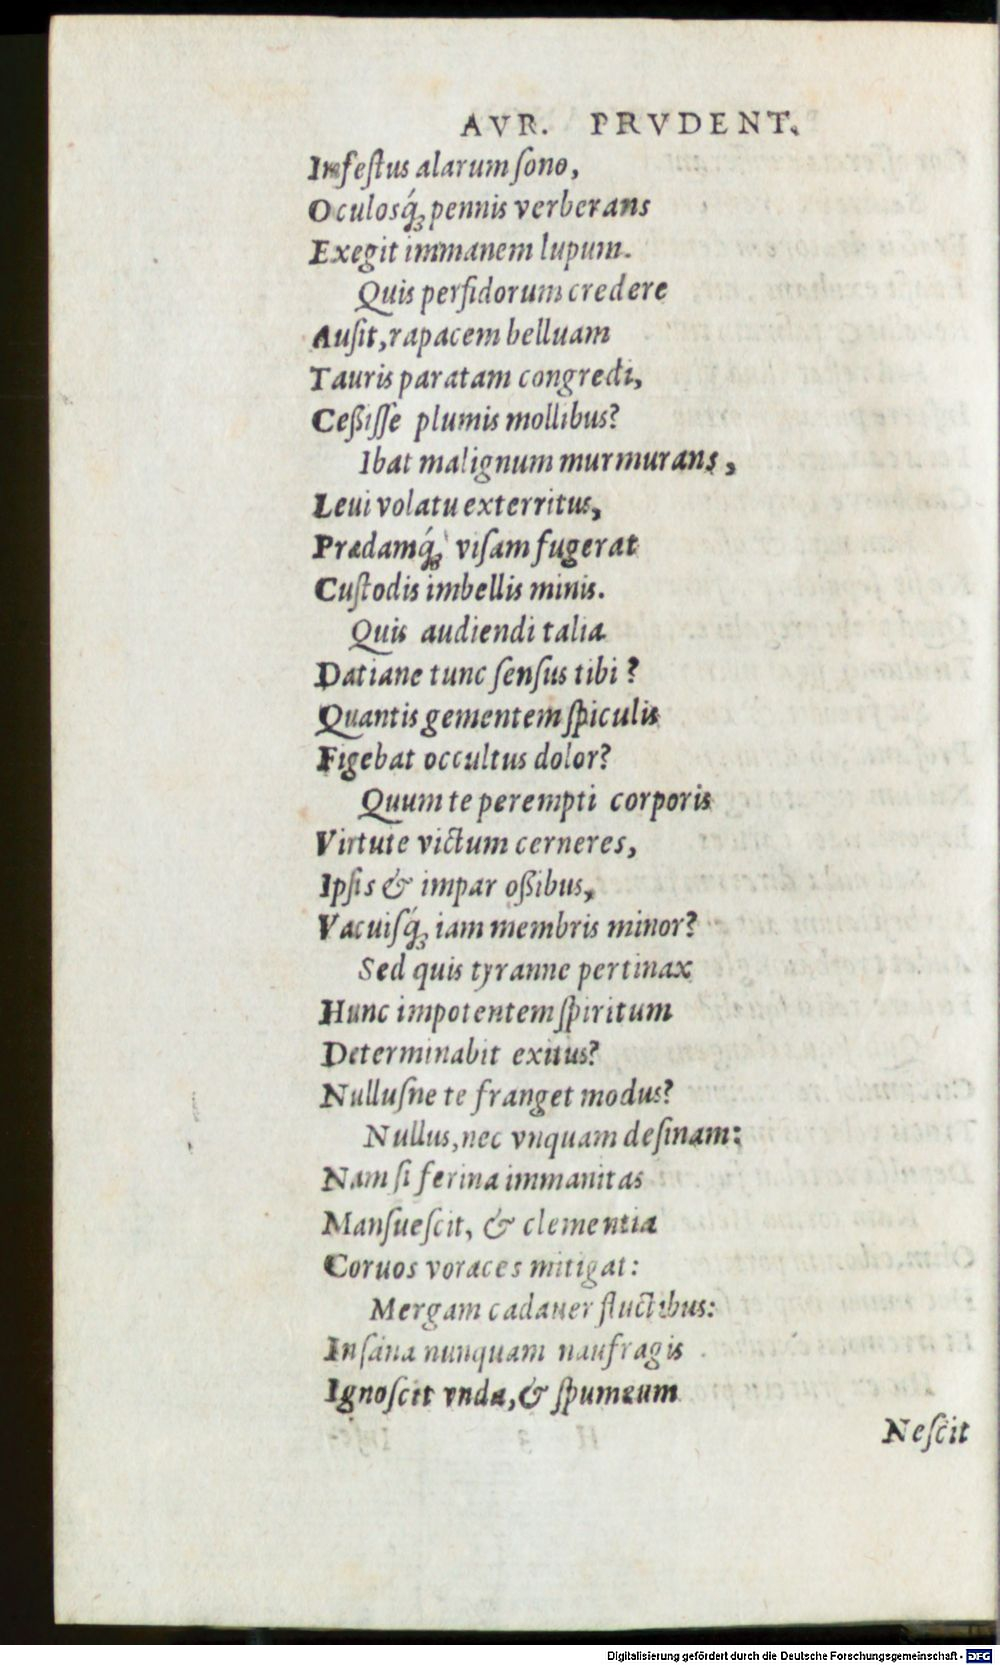 AVR. PRVDENT.
Infeſtus alarum ſono,
Oculosq́; pennis verberans
Exegit immanem lupum.
Quis perfidorum credere
Auſit, rapacem belluam
Tauris paratam congredi,
Ceßiſſe plumis mollibus?
Ibat malignum murmurans,
Leui volatu exterritus,
Prædamq́; viſam fugerat
Cuſtodis imbellis minis.
Quis audiendi talia
Datiane tunc ſenſus tibi?
Quantis gementem ſpiculis
Figebat occultus dolor?
Quum te perempti corporis
Virtute victum cerneres,
Ipſis & impar oßibus,
Vacuiſq́; iam membris minor?
Sed quis tyranne pertinax
Hunc impotentem ſpiritum
Determinabit exitus?
Nulluſne te franget modus?
Nullus, nec vnquam deſinam:
Nam ſi ferina immanitas
Manſueſcit, & clementia
Coruos voraces mitigat:
Mergam cadauer fluctibus:
Inſana nunquam naufragis
Ignoſcit vnda, & ſpumeum
Neſcit
Digitalisierung gefördert durch die Deutsche Forschungsgemeinschaft - DFG